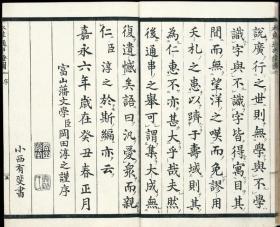 說廣行之世則無學與不學
識字與不識字皆得寓目其
間而無望洋之嘆而免謬用
夭札之患以躋于壽域則其
為仁惠不亦甚大乎哉夫然
後通串之舉可謂集大成無
復遺憾矣語曰汎愛衆而親
仁臣淳之於斯編亦云
嘉永六年歳在癸丑春正月
富山藩文學臣岡田淳之謹序
小西有斐書